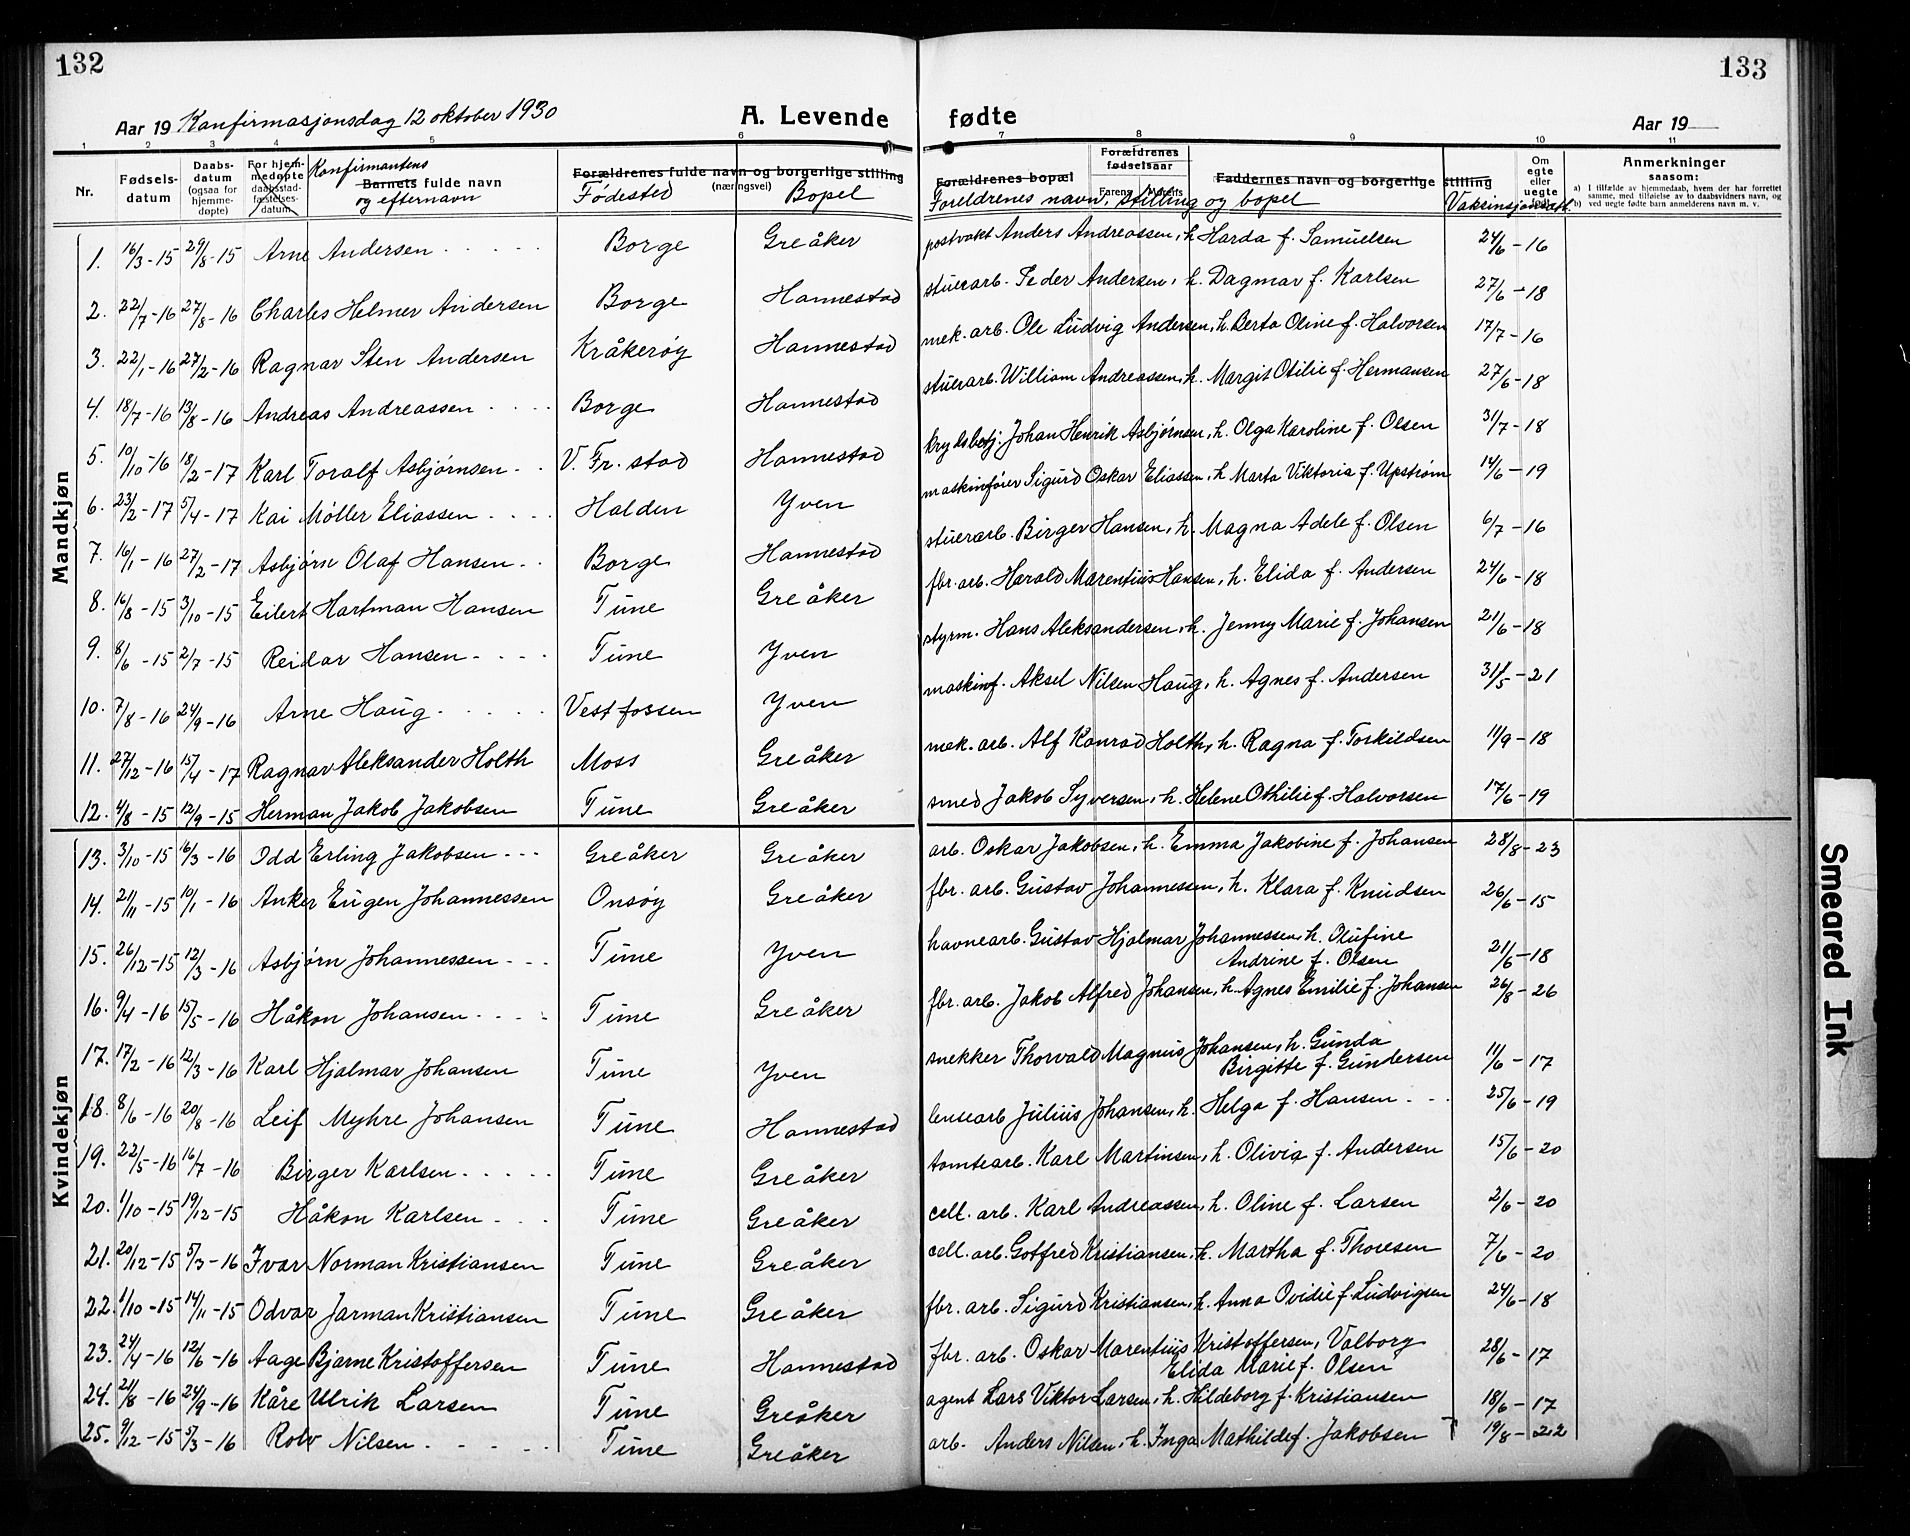 132
133
Aar 19 Konfirmasjonsdag 12 oktober 1930
A. Levende fødte
Aar 19
1 2 3 4 5 6 7 8 9 10 11
Nr.
Fødsels-datum
Daabs-datum (ogsaa for hjemme-døpte)
For hjem-medøpte daabsstad-fæstelses-datum
Konfirmantens
Barnets fulde navn
og efternavn
Forældrenes fulde navn og borgerlige stilling (næringsvei)
Fødested Bopel
Forældrenes bopæl
Forældrenes fødselsaar
Farens Morens
Faddernes navn og borgerlige stilling
Foreldrenes navn, stilling og bopel
Om egte eller uegte født
Vaksinsjonsatt.
Anmerkninger
saasom:
a) I tilfælde av hjemmedaab, hvem der har forrettet samme, med tilføielse av to daabsvidners navn, og
b) ved uegte fødte barn anmelderens navn m. v.
Mandkjøn
1. 16/3-15 29/8-15 Arne Andersen Borge Greåker postvakt Anders Andreassen, h. Harda f. Samuelsen 24/6-16
2. 22/7-16 27/8-16 Charles Helmer Andersen Borge Hannestad stuerarb. Peder Andersen, h. Dagmar f. Karlsen 27/6-18
3. 22/1-16 27/2-16 Ragnar Sten Andersen Kråkerøy Hannestad mek. arb. Ole Ludvig Andersen, h. Berta Oline f. Halvorsen 17/7-16
4. 18/7-16 13/8-16 Andreas Andreassen Borge Hannestad stuerarb. William Andreassen, h. Margit Otilie f. Hermansen 27/6-18
5. 10/10-16 18/2-17 Karl Toralf Asbjørnsen V. Fr. stad Hannestad krydsbetj. Johan Henrik Asbjørnsen, h. Olga Karoline f. Olsen 31/7-18
6. 23/2-17 5/4-17 Kai Møller Eliassen Halden Yven maskinfører Sigurd Oskar Eliassen, h. Marta Viktoria f. Upstrøm 14/6-19
7. 16/1-16 27/2-17 Asbjørn Olaf Hansen Borge Hannestad stuerarb. Birger Hansen, h. Magna Adele f. Olsen 6/7-16
8. 16/8-15 3/10-15 Eilert Hartman Hansen Tune Greåker fbr. arb. Harald Marentius Hansen, h. Elida f. Andersen 24/6-18
9. 8/6-15 2/7-15 Reidar Hansen Tune Yven styrm. Hans Aleksandersen, h. Jenny Marie f. Johansen 21/6-18
10. 7/8-16 24/9-16 Arne Haug Vestfossen Yven maskinf. Aksel Nilsen Haug, h. Agnes f. Andersen 31/5-21
11. 27/12-16 15/4-17 Ragnar Aleksander Holth Moss Greåker mek. arb. Alf Konrad Holth, h. Ragna f. Torkildsen 11/9-18
12. 4/8-15 12/9-15 Herman Jakob Jakobsen Tune Greåker smed Jakob Syversen, h. Helene Othilie f. Halvorsen 17/6-19
Kvindekjøn
13. 3/10-15 16/3-16 Odd Erling Jakobsen Greåker Greåker arb. Oskar Jakobsen, h. Emma Jakobine f. Johansen 28/8-23
14. 21/11-15 10/1-16 Anker Eugen Johannessen Onsøy Greåker fbr. arb. Gustav Johannessen, h. Klara f. Knudsen 26/6-15
15. 26/12-15 12/3-16 Asbjørn Johannessen Tune Yven havnearb. Gustav Hjalmar Johannessen, h. Olufine
Andrine f. Olsen 21/6-18
16. 9/4-16 15/5-16 Håkon Johansen Tune Greåker fbr. arb. Jakob Alfred Johansen, h. Agnes Emilie f. Johansen 26/8-26
17. 17/2-16 12/3-16 Karl Hjalmar Johansen Tune Yven snekker Thorvald Magnus Johansen, h. Gunda
Birgitte f. Gundersen 11/6-17
18. 8/6-16 20/8-16 Leif Myhre Johansen Tune Hannestad lensearb Julius Johansen, h. Helga f. Hansen 25/6-19
19. 22/5-16 16/7-16 Birger Karlsen Tune Greåker tomtearb. Karl Martinsen, h. Olivia f. Andersen 15/6-20
20. 1/10-15 19/12-15 Håkon Karlsen Tune Greåker cell. arb. Karl Andreassen, h. Oline f. Larsen 2/6-20
21. 20/12-15 5/3-16 Ivar Norman Kristiansen Tune Greåker cell. arb. Gotfred Kristiansen, h. Martha f. Thoresen 7/6-20
22. 1/10-15 14/11-15 Odvar Jarman Kristiansen Tune Greåker fbr. arb. Sigurd Kristiansen, h. Anna Ovidie f. Ludvigsen 24/6-18
23. 24/4-16 12/6-16 Aage Bjarne Kristoffersen Tune Hannestad fbr. arb. Oskar Marentius Kristoffersen, Valborg
Elida Marie f. Olsen 28/6-17
24. 21/8-16 24/9-16 Kåre Ulrik Larsen Tune Greåker agent Lars Viktor Larsen, h. Hildeborg f. Kristiansen 18/6-17
25. 9/12-15 5/3-16 Rolv Nilsen Tune Greåker arb. Anders Nilsen, h. Inga Mathilde f. Jakobsen 19/8-22
Smeared Ink